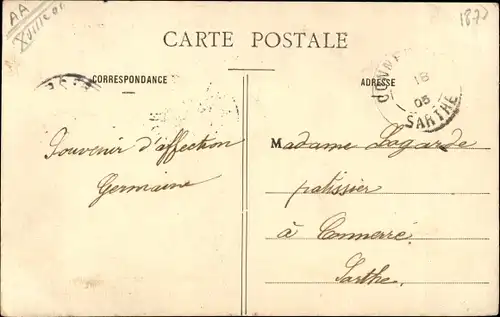 AA
1878
CARTE POSTALE
CORRESPONDANCE
ADRESSE
18
05
SARTHE
Souvenir d'affection
Germaine
Madame Lagarde
patissier
à Connerré
Sarthe.